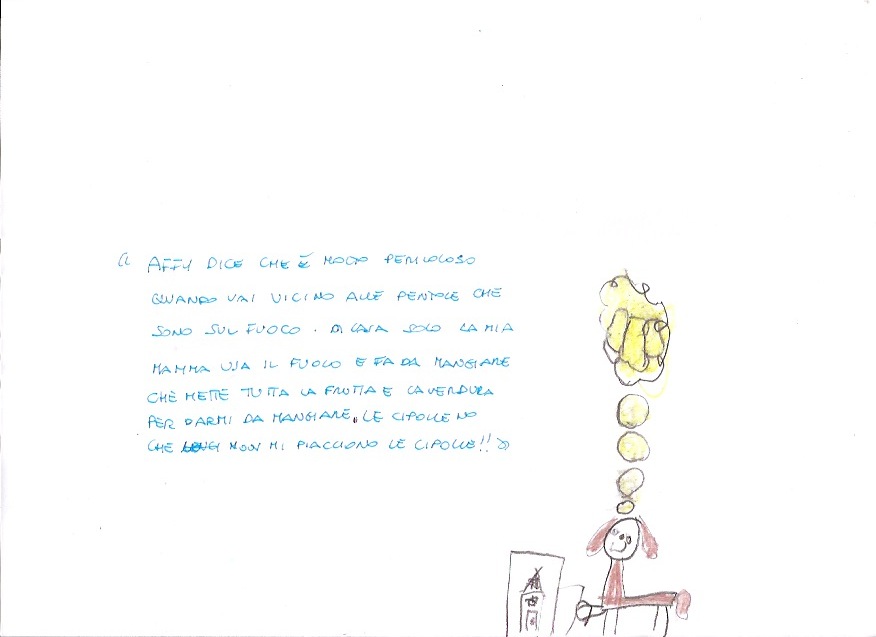 " AFFY DICE CHE È MOLTO PERICOLOSO
QUANDO VAI VICINO ALLE PENTOLE CHE
SONO SUL FUOCO. A CASA SOLO LA MIA
MAMMA USA IL FUOCO E FA DA MANGIARE
CHÈ METTE TUTTA LA FRUTTA E LA VERDURA
PER DARMI DA MANGIARE, LE CIPOLLE NO
CHE NON MI PIACCIONO LE CIPOLLE!! "